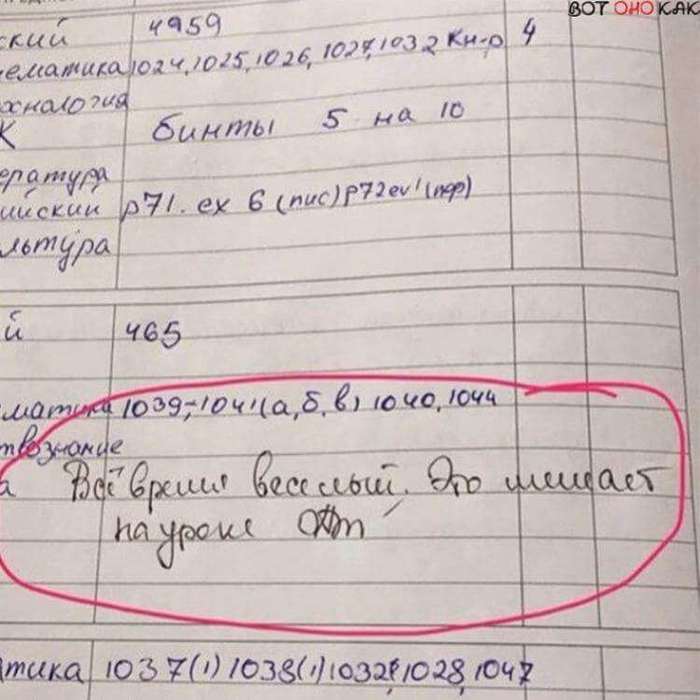 ВОТ ОНО КАК
ский 4959
ематика 1024, 1025, 1026, 1027, 1032 Кн-р 4
хнология
К бинты 5 на 10
ература
ийский р71. ex 6 (пис) р72 ex1 (пер)
льтура
й 465
матика 1039, 1041 (а, б, в) 1040, 1044
твознание
а Всё время веселый. Это мешает
на уроке
тика 1037(1) 1038(1) 1032, 1028, 1047